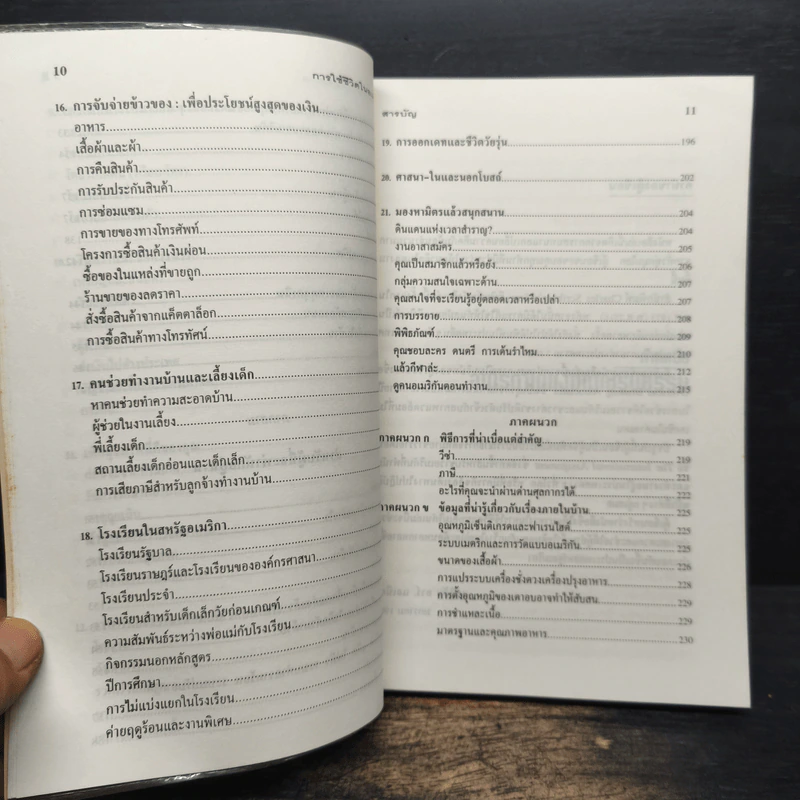 10
การใช้ชีวิตใน
16. การจับจ่ายข้าวของ : เพื่อประโยชน์สูงสุดของเงิน
อาหาร
เสื้อผ้าและผ้า
การคืนสินค้า
การรับประกันสินค้า
การซ่อมแซม
การขายของทางโทรศัพท์
โครงการซื้อสินค้าเงินผ่อน
ซื้อของในแหล่งที่ขายถูก
ร้านขายของลดราคา
สั่งซื้อสินค้าจากแค็ตตาล็อก
การซื้อสินค้าทางโทรทัศน์
17. คนช่วยทำงานบ้านและเลี้ยงเด็ก
หาคนช่วยทำความสะอาดบ้าน
ผู้ช่วยในงานเลี้ยง
พี่เลี้ยงเด็ก
สถานเลี้ยงเด็กอ่อนและเด็กเล็ก
การเสียภาษีสำหรับลูกจ้างทำงานบ้าน
18. โรงเรียนในสหรัฐอเมริกา
โรงเรียนรัฐบาล
โรงเรียนราษฎร์และโรงเรียนขององค์กรศาสนา
โรงเรียนประจำ
โรงเรียนสำหรับเด็กเล็กวัยก่อนเกณฑ์
ความสัมพันธ์ระหว่างพ่อแม่กับโรงเรียน
กิจกรรมนอกหลักสูตร
ปีการศึกษา
การไม่แบ่งแยกในโรงเรียน
ค่ายฤดูร้อนและงานพิเศษ
สารบัญ 11
19. การออกเดทและชีวิตวัยรุ่น 196
20. ศาสนา-ในและนอกโบสถ์ 202
21. มองหามิตรแล้วสนุกสนาน 204
ดินแดนแห่งเวลาสำราญ? 204
งานอาสาสมัคร 205
คุณเป็นสมาชิกแล้วหรือยัง 206
กลุ่มความสนใจเฉพาะด้าน 207
คุณสนใจที่จะเรียนรู้อยู่ตลอดเวลาหรือเปล่า 207
การบรรยาย 208
พิพิธภัณฑ์ 209
คุณชอบละคร ดนตรี การเต้นรำไหม 210
แล้วกีฬาล่ะ 212
ดูคนอเมริกันตอนทำงาน 215
ภาคผนวก
ภาคผนวก ก พิธีการที่น่าเบื่อแต่สำคัญ 219
วีซ่า 219
ภาษี 221
อะไรที่คุณจะนำผ่านด่านศุลกากรได้ 222
ภาคผนวก ข ข้อมูลที่น่ารู้เกี่ยวกับเรื่องภายในบ้าน 225
อุณหภูมิเซ็นติเกรดและฟาเรนไฮต์ 225
ระบบเมตริกและการวัดแบบอเมริกัน 225
ขนาดของเสื้อผ้า 225
การแปรระบบเครื่องชั่งตวงเครื่องปรุงอาหาร 228
การตั้งอุณหภูมิของเตาอบอาจทำให้สับสน 229
การชำแหละเนื้อ 229
มาตรฐานและคุณภาพอาหาร 230